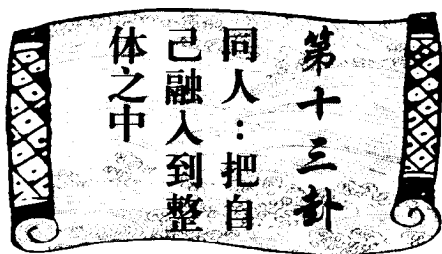 第十三卦
同人：把自
己融入到整
体之中